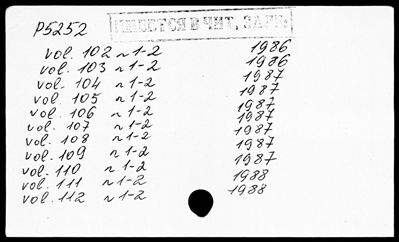 P5252 ИМЕЕТСЯ В ЧИТ. ЗАЛЕ.
vol. 102 n 1-2 1986
vol. 103 n 1-2 1986
vol. 104 n 1-2 1987
vol. 105 n 1-2 1987
vol. 106 n 1-2 1987
vol. 107 n 1-2 1987
vol. 108 n 1-2 1987
vol. 109 n 1-2 1987
vol. 110 n 1-2 1987
vol. 111 n 1-2 1988
vol. 112 n 1-2 1988